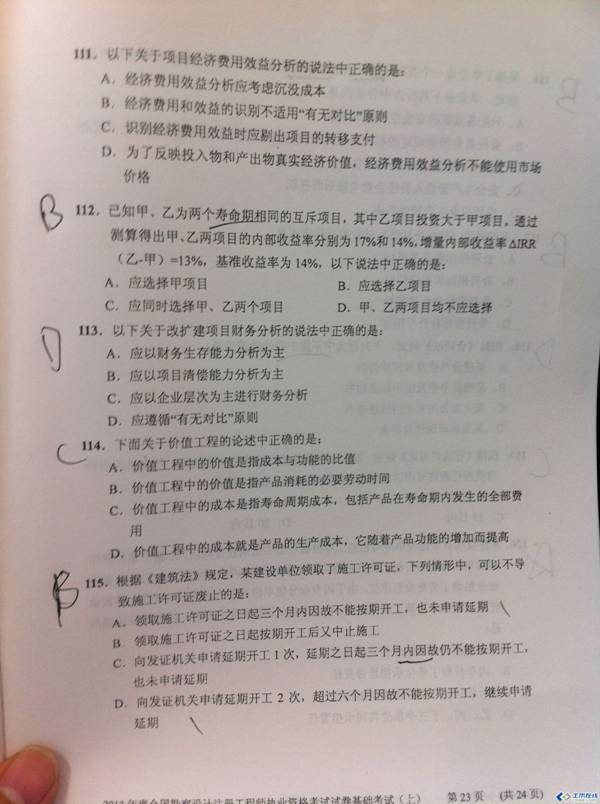 111．以下关于项目经济费用效益分析的说法中正确的是：
A．经济费用效益分析应考虑沉没成本
B．经济费用和效益的识别不适用“有无对比”原则
C．识别经济费用效益时应剔出项目的转移支付
D．为了反映投入物和产出物真实经济价值，经济费用效益分析不能使用市场
价格
B
112．已知甲、乙为两个寿命期相同的互斥项目，其中乙项目投资大于甲项目。通过
测算得出甲、乙两项目的内部收益率分别为17%和14%，增量内部收益率ΔIRR
（乙-甲）=13%，基准收益率为14%，以下说法中正确的是：
A．应选择甲项目 B．应选择乙项目
C．应同时选择甲、乙两个项目 D．甲、乙两项目均不应选择
D
113．以下关于改扩建项目财务分析的说法中正确的是：
A．应以财务生存能力分析为主
B．应以项目清偿能力分析为主
C．应以企业层次为主进行财务分析
D．应遵循“有无对比”原则
C
114．下面关于价值工程的论述中正确的是：
A．价值工程中的价值是指成本与功能的比值
B．价值工程中的价值是指产品消耗的必要劳动时间
C．价值工程中的成本是指寿命周期成本，包括产品在寿命期内发生的全部费
用
D．价值工程中的成本就是产品的生产成本，它随着产品功能的增加而提高
B
115．根据《建筑法》规定，某建设单位领取了施工许可证，下列情形中，可以不导
致施工许可证废止的是：
A．领取施工许可证之日起三个月内因故不能按期开工，也未申请延期
B 领取施工许可证之日起按期开工后又中止施工
C．向发证机关申请延期开工1次，延期之日起三个月内因故仍不能按期开工，
也未申请延期
D．向发证机关申请延期开工 2 次，超过六个月因故不能按期开工，继续申请
延期
年度全国勘察设计注册工程师执业资格考试试卷基础考试（上） 第 23 页 （共 24 页）
工市在线